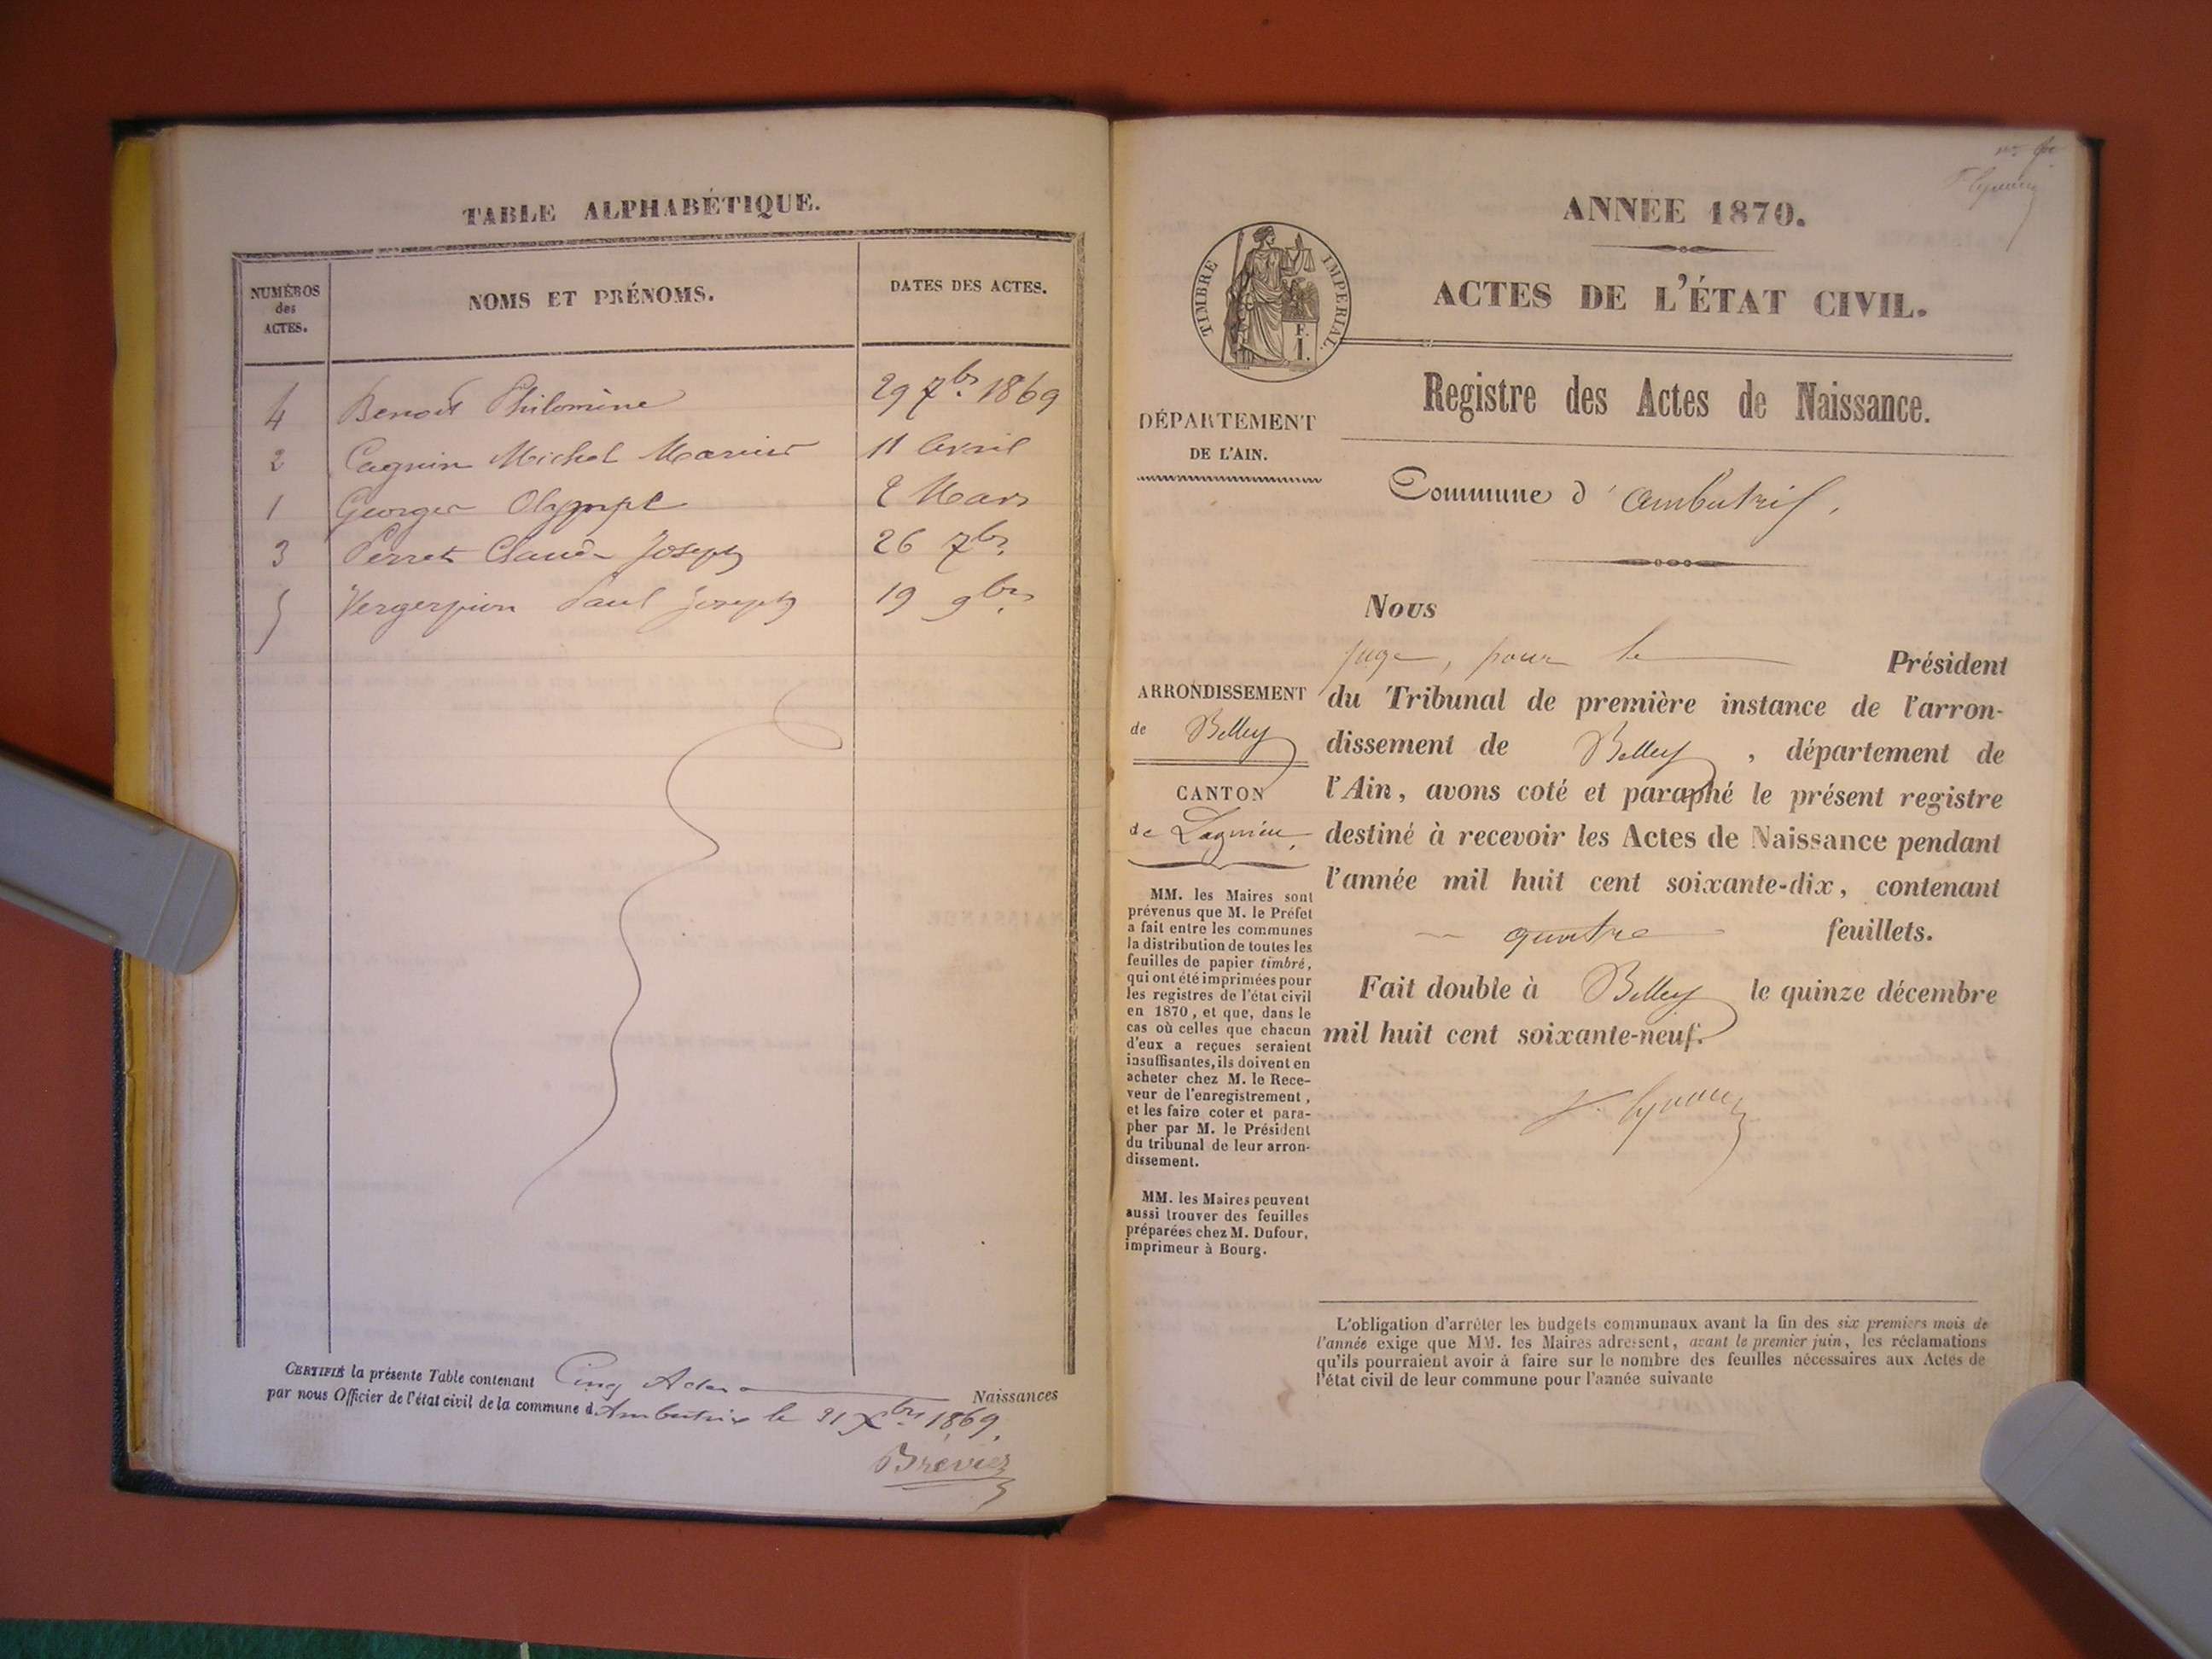 TABLE ALPHABÉTIQUE.
NUMÉROS des ACTES.
NOMS ET PRÉNOMS.
DATES DES ACTES.
4 Benoit Philomène 29 7bre 1869
2 Cagnin Michel Marius 11 Avril
1 Georges Olympe 2 Mars
3 Perret Claude Joseph 26 7bre
5 Vergerpion Paul Joseph 19 9bre
CERTIFIÉ la présente Table contenant Cinq Actes Naissances
par nous Officier de l'état civil de la commune d'Ambutrix le 31 Xbre 1869.
Brevier
ANNÉE 1870.
ACTES DE L'ÉTAT CIVIL.
TIMBRE IMPERIAL.
F.
I.
Registre des Actes de Naissance.
DÉPARTEMENT
DE L'AIN.
Commune d'ambutrix,
ARRONDISSEMENT
de Belley
CANTON
de Lagnieu,
MM. les Maires sont
prévenus que M. le Préfet
a fait entre les communes
la distribution de toutes les
feuilles de papier timbré,
qui ont été imprimées pour
les registres de l'état civil
en 1870, et que, dans le
cas où celles que chacun
d'eux a reçues seraient
insuffisantes, ils doivent en
acheter chez M. le Rece-
veur de l'enregistrement,
et les faire coter et para-
pher par M. le Président
du tribunal de leur arron-
dissement.
MM. les Maires peuvent
aussi trouver des feuilles
préparées chez M. Dufour,
imprimeur à Bourg.
Nous
juge, pour le Président
du Tribunal de première instance de l'arron-
dissement de Belley, département de
l'Ain, avons coté et paraphé le présent registre
destiné à recevoir les Actes de Naissance pendant
l'année mil huit cent soixante-dix, contenant
quatre feuillets.
Fait double à Belley le quinze décembre
mil huit cent soixante-neuf.
L'obligation d'arrêter les budgets communaux avant la fin des six premiers mois de
l'année exige que MM. les Maires adressent, avant le premier juin, les réclamations
qu'ils pourraient avoir à faire sur le nombre des feuilles nécessaires aux Actes de
l'état civil de leur commune pour l'année suivante